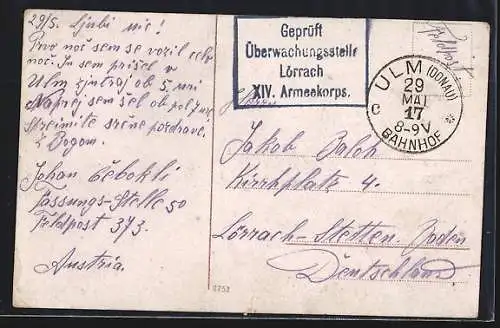 29/5. Ljubi mi!
Prvo noč sem se vozil celo
noč. In sem prišel v
Ulm zjutraj ob 5. uri
Naprej sem šel ob pol 7. uri
Sprejmite srčne pozdrave.
z Bogom.
Johan Čebokli
Fassungs-Stelle 50
Feldpost 373.
Austria.
Geprüft
Überwachungsstelle
Lörrach
XIV. Armeekorps.
Feldpost
ULM (DONAU)
29
MAI
17
8-9V
C *
BAHNHOF
Herrn
Jakob Balch
Kirchplatz 4.
Lörrach-Stetten. Baden
Deutschland